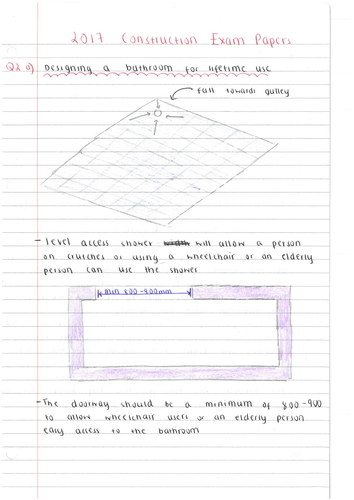 2017 Construction Exam Papers
Q2 a) Designing a bathroom for lifetime use
fall towards gulley
- level access shower will allow a person
on crutches or using a wheelchair or an elderly
person can use the shower
min 800-900mm
- The doorway should be a minimum of 800-900
to allow wheelchair users or an elderly person
easy access to the bathroom